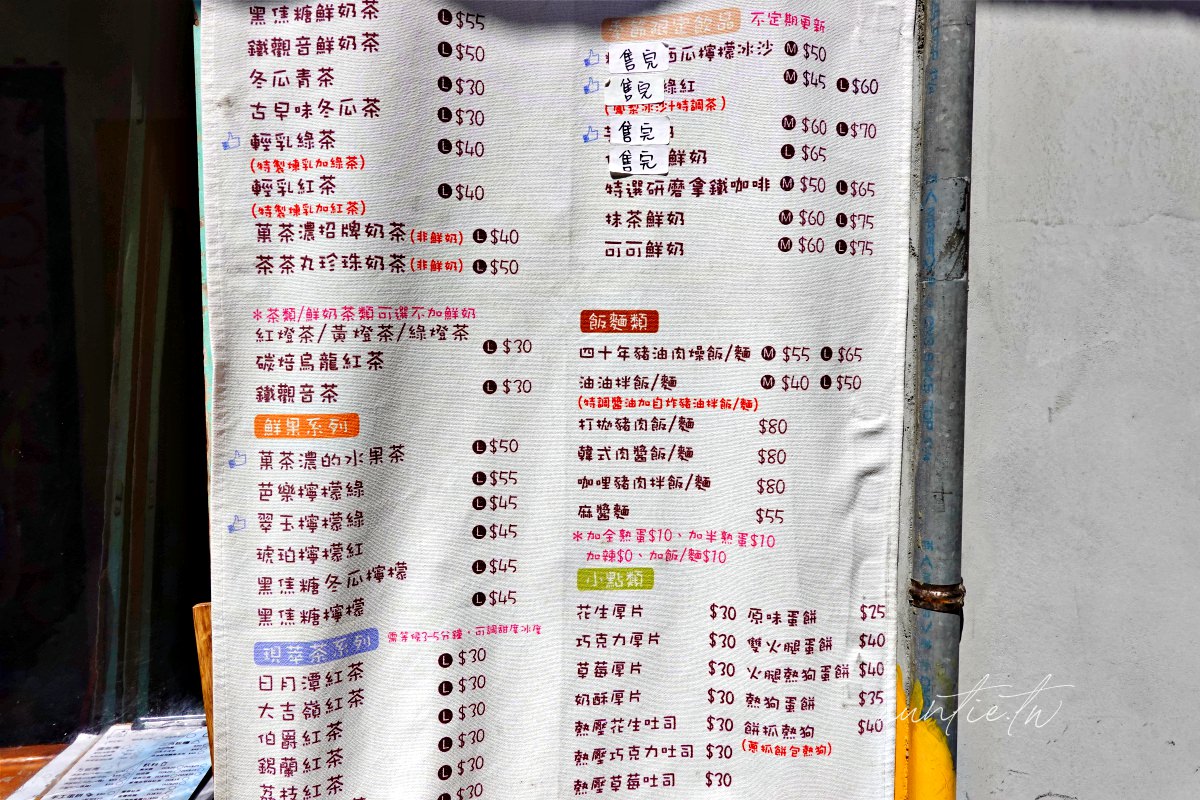 黑焦糖鮮奶茶 L $55
鐵觀音鮮奶茶 L $50
冬瓜青茶 L $30
古早味冬瓜茶 L $30
輕乳綠茶 L $40
(特製煉乳加綠茶)
輕乳紅茶 L $40
(特製煉乳加紅茶)
菓茶濃招牌奶茶(非鮮奶) L $40
茶茶丸珍珠奶茶(非鮮奶) L $50
*茶類/鮮奶茶類可選不加鮮奶
紅燈茶/黃燈茶/綠燈茶 L $30
碳焙烏龍紅茶
鐵觀音茶 L $30
鮮果系列
菓茶濃的水果茶 L $50
芭樂檸檬綠 L $55
翠玉檸檬綠 L $45
琥珀檸檬紅 L $45
黑焦糖冬瓜檸檬 L $45
黑焦糖檸檬 L $45
現萃茶系列 需等候3-5分鐘,可調甜度冰度
日月潭紅茶 L $30
大吉嶺紅茶 L $30
伯爵紅茶 L $30
錫蘭紅茶 L $30
荔枝紅茶 L $30
L $30
節限定飲品 不定期更新
售完 西瓜檸檬冰沙 M $50
售完 綠紅 M $45 L $60
冰沙+特調茶)
售完 M $60 L $70
售完 鮮奶 L $65
特選研磨拿鐵咖啡 M $50 L $65
抹茶鮮奶 M $60 L $75
可可鮮奶 M $60 L $75
飯麵類
四十年豬油肉燥飯/麵 M $55 L $65
油油拌飯/麵 M $40 L $50
(特調醬油加自炸豬油拌飯/麵)
打拋豬肉飯/麵 $80
韓式肉醬飯/麵 $80
咖哩豬肉拌飯/麵 $80
麻醬麵 $55
*加全熟蛋$10、加半熟蛋$10
加辣$0、加飯/麵$10
小點類
花生厚片 $30 原味蛋餅 $25
巧克力厚片 $30 雙火腿蛋餅 $40
草莓厚片 $30 火腿熱狗蛋餅 $40
奶酥厚片 $30 熱狗蛋餅 $35
熱壓花生吐司 $30 餅抓熱狗 $40
(蔥抓餅包熱狗)
熱壓巧克力吐司 $30
熱壓草莓吐司 $30
untie.tw